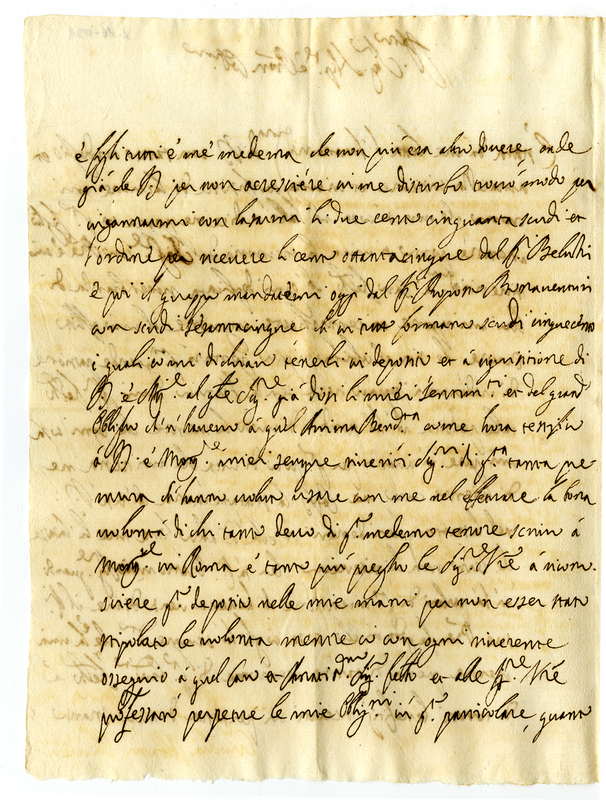 è figli tutti è mè medema che non più era altro dovere onde
già che per non acrescière in me disturbo trovò modo per
ingannarmi con lasciarmi li due cento cinquanta scudi et
l'ordine per ricevere li cento ottantacinque dal Sr. Belushi
è poi il gruppo mandatemi oggi dal Sr. Buonaventuri
con scudi sesantacinque ch'in tutto formano scudi cinquecento
i quali io mi dichiaro tenerli in deposito et a requisitione di
è già dissi li miei sentim.ti et del grand
obligho ch'n'havevo à quel Anima Bened.ta come hora
à è miei sempre riveriti di q.ta tanta pre
mura ch'hanno voluto usare con me nel efettuare la bona
volontà di chi tanto devo di q.to medemo tenore scrivo à
in Roma è tanto più pregho le Sig.rie Vre à ricono
sciere q.to deposito nelle mie mani per non esser stato
stipolato le volonta mentre io con ogni riverente
ossequio à quel et alle Sig.rie Vre
professarò perpetue le mie Oblig.ni in q.to particolare, quanto